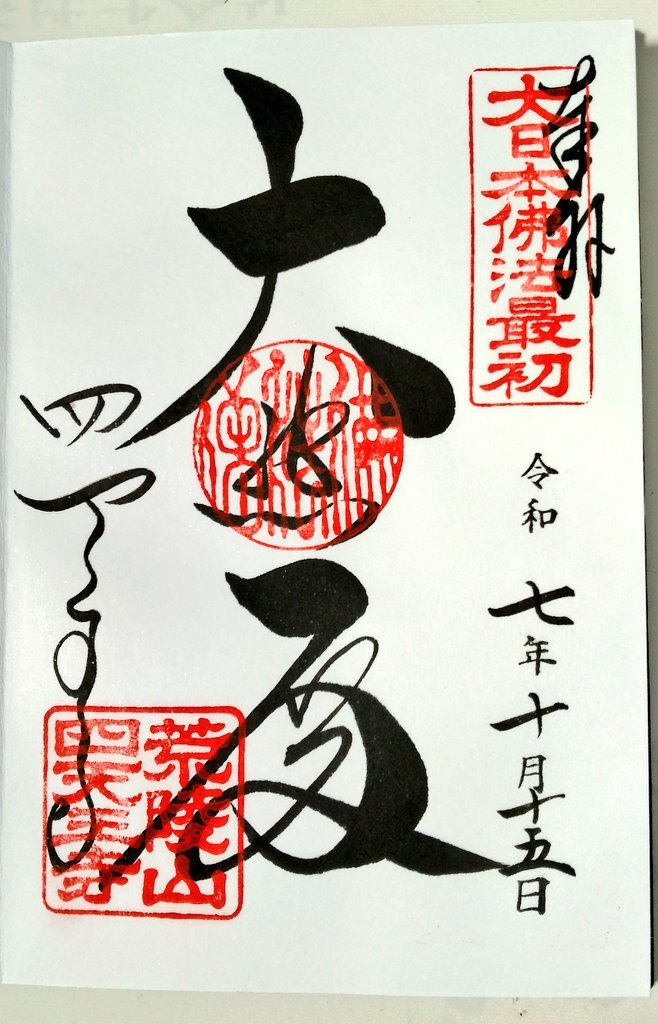 奉拝
大日本佛法最初
令和七年十月十五日
大悲殿
四天王寺
荒陵山
四天王寺